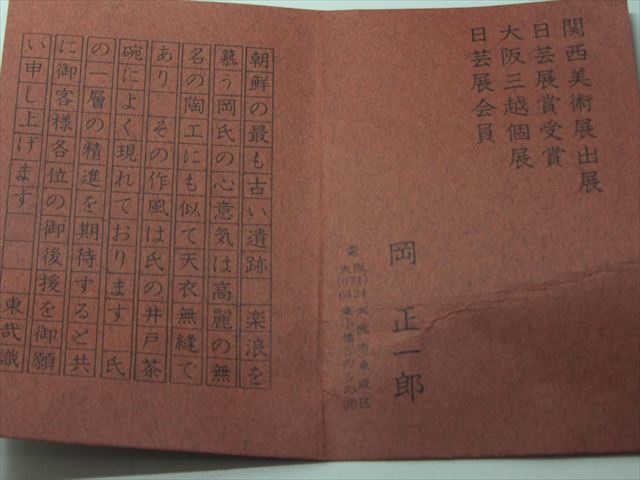 関西美術展出展
日芸展賞受賞
大阪三越個展
日芸展会員
岡 正一郎
大阪市東成区
朝鮮の最も古い遺跡 楽浪を
慕う岡氏の心意気は高麗の無
名の陶工にも似て天衣無縫で
あり その作風は氏の井戸茶
碗によく現れております 氏
の一層の精進を期待すると共
に御客様各位の御後援を御願
い申し上げます 東哉識